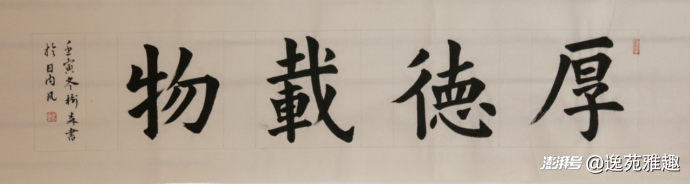 厚德載物
壬寅冬樹森書
於日内瓦
澎湃号@逸苑雅趣